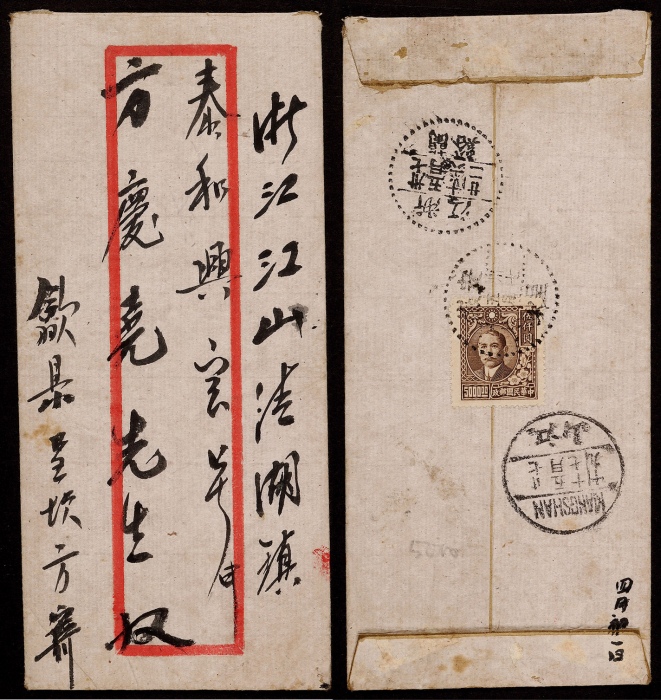 浙江江山清湖鎮
泰和興宝号
方慶堯先生收
歙县呈坎方寄
伍仟圓
5000.00
中華民國郵政
江山
KIANGSHAN
四月初一日